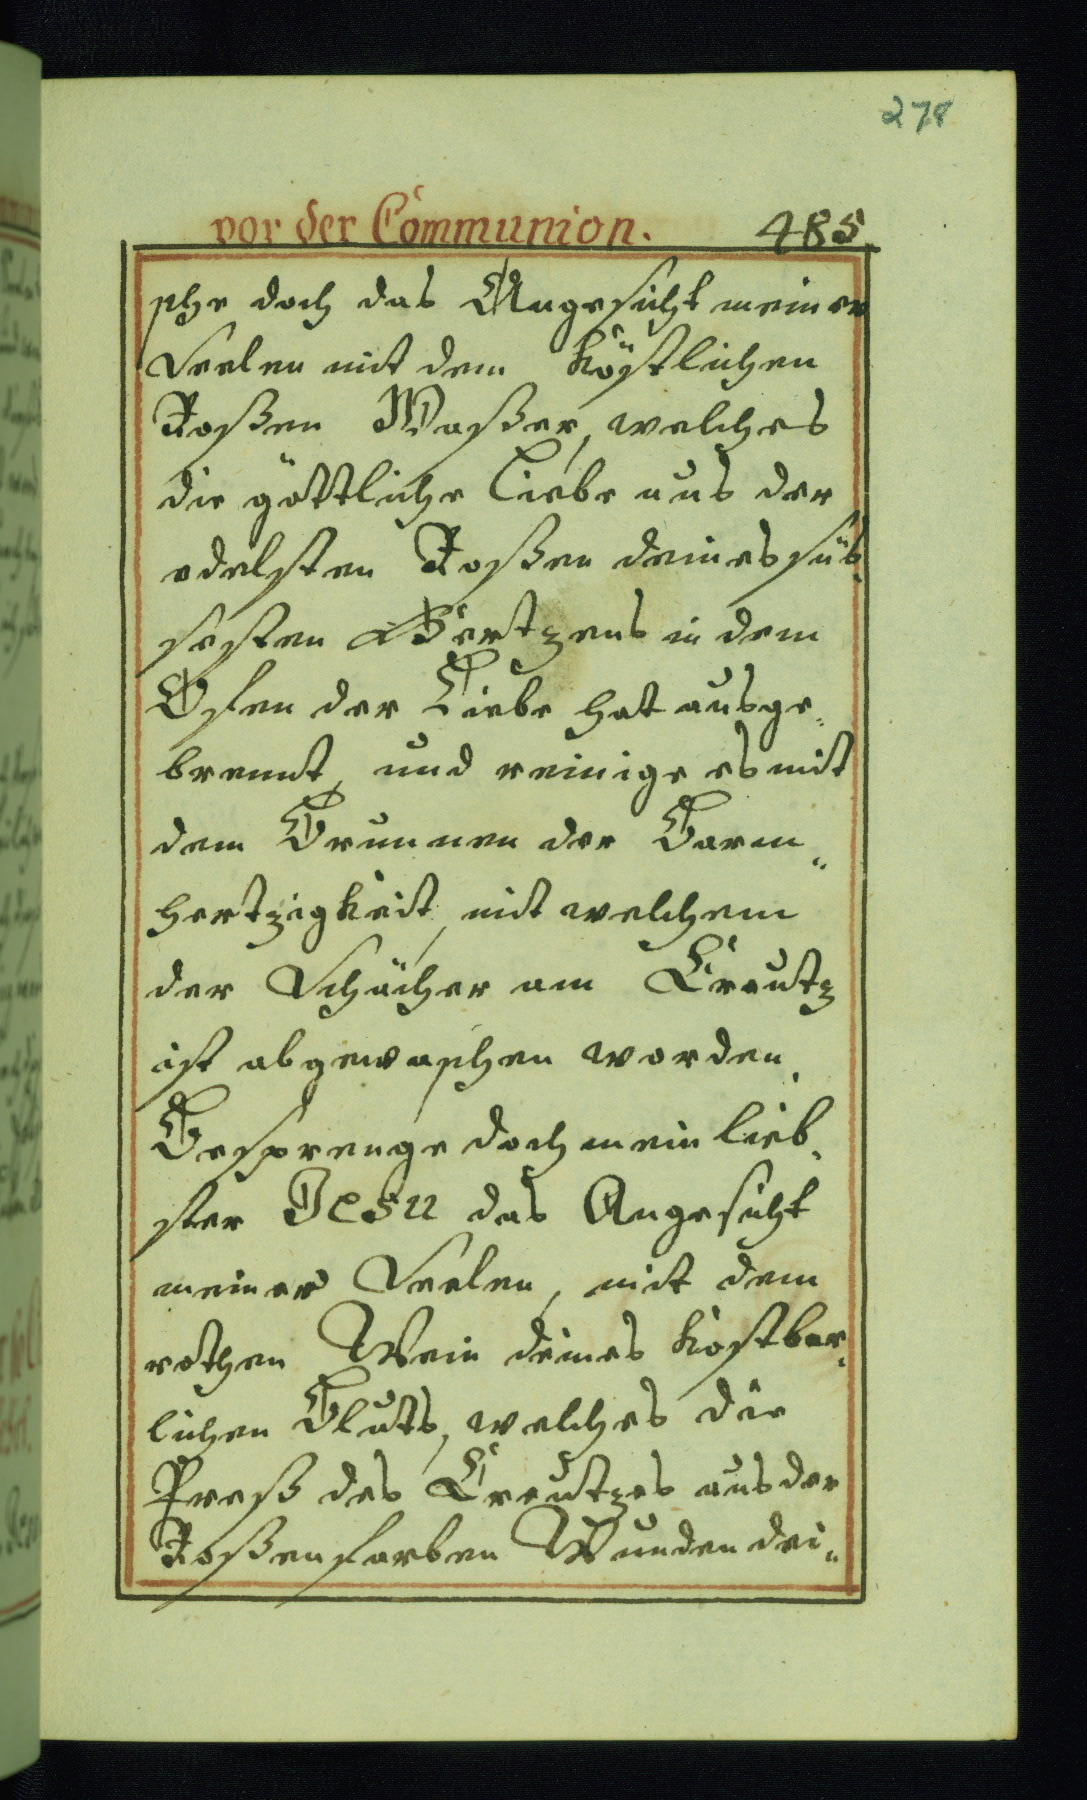 278
vor der Communion. 485.
sche doch das Angesicht meiner
Seelen mit dem köstlichen
Roßen Waßer, welches
die göttliche Liebe aus der
edelsten Roßen deines süs,
sesten Hertzens in dem
Ofen der Liebe hat ausge,
brennt, und reinige es mit
dem Brunnen der Barm„
hertzigkeit, mit welchem
der Schächer am Creutz
ist abgewaschen worden,
Besprenge doch mein lieb,
ster Jesu das Angesicht
meiner Seelen, mit dem
rothen Wein deines kostbar,
lichen Bluts, welches die
Preß des Creutzes aus der
Roßenfarben Wunden dei„